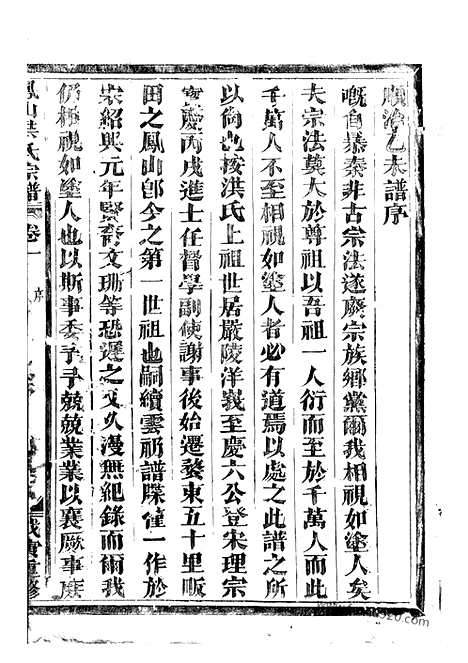 順治乙未譜序
嘅自暴秦非古宗法遂廢宗族鄉黨爾我相視如塗人矣
夫宗法莫大於尊祖以吾祖一人衍而至於千萬人而此
千萬人不至相視如塗人者必有道焉以處之此譜之所
以尚也按洪氏上祖世居嚴陵洋義至慶六公登宋理宗
寶慶丙戌進士任督學副使謝事後始遷婺東五十里畈
田之鳳山卽今之第一世祖也嗣續雲礽譜牒僅一作於
宋紹興元年賢裔文珊等恐遲之又久漫無紀錄而爾我
仍極視如塗人也以斯事委予予兢兢業業以襄厥事庶
鳳山洪氏宗譜 卷一 序 戊寅重修